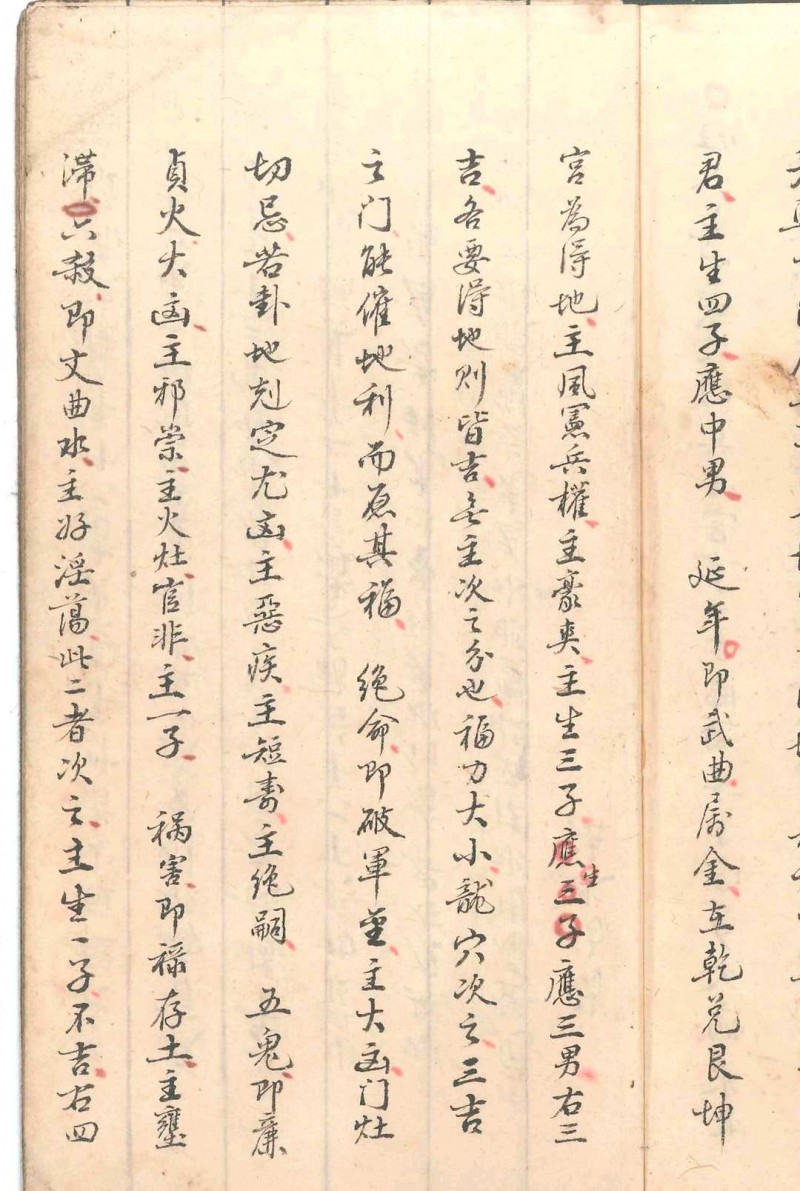 君主生四子應中男　延年即武曲属金在乾兑艮坤
宫為得地主風憲兵權主豪爽主生三子應三子應三男右三
生
吉各要得地则皆吉無主次之分也福力大小龍穴次之三吉
之门能催地利而添其福　绝命即破軍金主大凶门灶
切忌若卦地尅定尤凶主惡疾主短寿主绝嗣　五鬼即廉
貞火大凶主邪祟主火灶官非主一子　祸害即禄存土主壅
滞　六殺即文曲水主好淫蕩此二者次之主生一子不吉右四